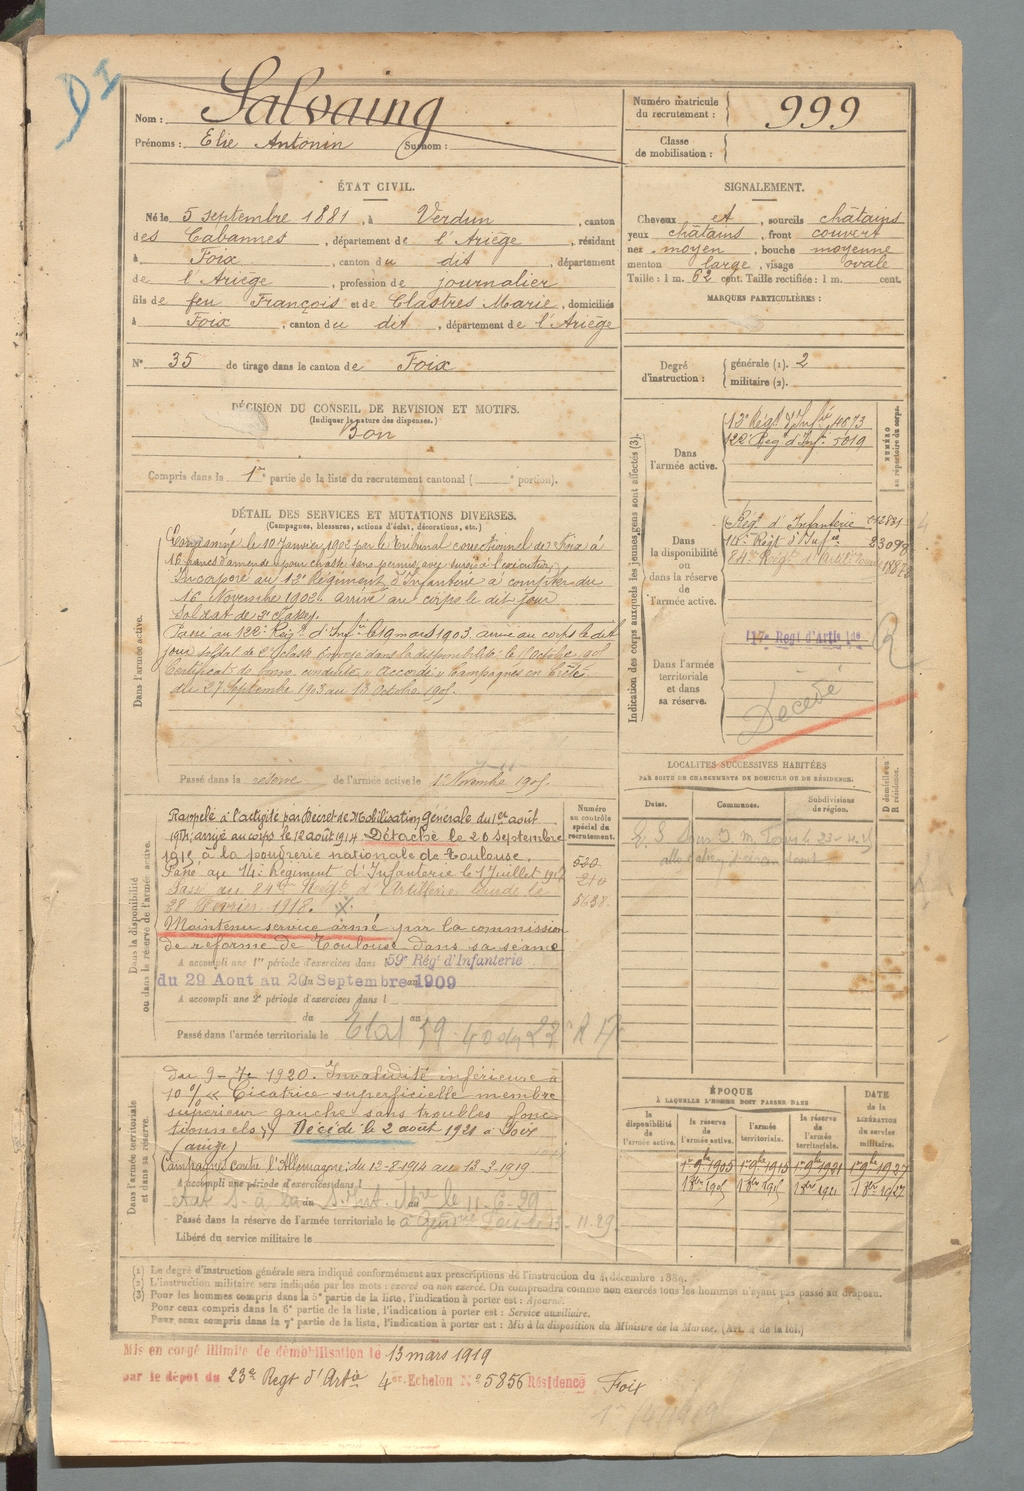 DI
Nom : Salvaing
Prénoms : Elie Antonin Surnom :
Numéro matricule du recrutement : 999
Classe de mobilisation :
ÉTAT CIVIL.
Né le 5 septembre 1881, à Verdun, canton
des Cabannes, département de l'Ariège, résidant
à Foix, canton du dit, département
de l'Ariège, profession de journalier
fils de feu François et de Clastres Marie, domiciliés
à Foix, canton du dit, département de l'Ariège
N° 35 de tirage dans le canton de Foix
SIGNALEMENT.
Cheveux et, sourcils châtains
yeux châtains, front couvert
nez moyen, bouche moyenne
menton large, visage ovale
Taille : 1 m. 62 cent. Taille rectifiée : 1 m. cent.
MARQUES PARTICULIÈRES :
Degré d'instruction : générale (1). 2
militaire (2).
DÉCISION DU CONSEIL DE REVISION ET MOTIFS.
(Indiquer la nature des dispenses.)
Bon
Compris dans la 1re partie de la liste du recrutement cantonal ( e portion).
DÉTAIL DES SERVICES ET MUTATIONS DIVERSES.
(Campagnes, blessures, actions d'éclat, décorations, etc.)
Dans l'armée active.
Condamné le 10 Janvier 1902 par le Tribunal correctionnel de Foix à
16 francs d'amende pour chasse sans permis avec sursis à l'exécution
Incorporé au 12e Régiment d'Infanterie à compter du
16 Novembre 1902. arrivé au corps le dit jour
Soldat de 2e classe.
Passé au 122e Régt d'Infie le 19 mars 1903. arrivé au corps le dit
jour soldat de 2e classe Envoyé dans la disponibilité le Octobre 1905
Certificat de bonne conduite "Accordé" Campagnes en
du 27 Septembre 1903 au 18 Octobre 1905.
Passé dans la réserve de l'armée active le 1er Novembre 1905.
Indication des corps auxquels les jeunes gens sont affectés (3).
NUMÉRO au répertoire du corps.
Dans l'armée active.
12e Régt d'Infie 4073
122e Régt d'Inf. 5019
Dans la disponibilité ou dans la réserve de l'armée active.
Régt d'Infanterie
14e Régt d'Infie 23098
84e Régt d'Artie Lourde
Dans l'armée territoriale et dans sa réserve.
17e Regt d'Artie
R
Décédé
LOCALITÉS SUCCESSIVES HABITÉES
PAR SUITE DE CHANGEMENTS DE DOMICILE OU DE RÉSIDENCE.
Dates. Communes. Subdivisions de région. D domicile ou R résidence.
Dans la disponibilité ou dans la réserve de l'armée active.
Numéro au contrôle spécial du recrutement.
Rappelé à l'activité par Décret de Mobilisation Générale du 1er août
1914; arrivé au corps le 12 août 1914 Détaché le 20 septembre
1915 à la poudrerie nationale de Toulouse.
Passé au 14e Régiment d'Infanterie le 1 Juillet 1917
Passé au 84e Régt d'Artillerie lourde le
28 Février 1918.
Maintenu service armé par la commission
de réforme de Toulouse dans sa séance
520
210
5638
A accompli une 1re période d'exercices dans l 59e Régt d'Infanterie
du 29 Aout au 20 Septembre 1909
A accompli une 2e période d'exercices dans l
du au
Passé dans l'armée territoriale le
Dans l'armée territoriale et dans sa réserve.
du 9-7e 1920. Invalidité inférieure à
10% « Cicatrice superficielle membre
supérieur gauche sans troubles fonc
tionnels » Décédé le 2 août 1921 à Foix
(Ariège)
Campagnes contre l'Allemagne : du 12-8-1914 au 13-3-1919.
A accompli une période d'exercices dans l
du au le 11-6-29
Passé dans la réserve de l'armée territoriale le
Libéré du service militaire le
ÉPOQUE
À LAQUELLE L'HOMME DOIT PASSER DANS
la disponibilité de l'armée active. la réserve de l'armée active. l'armée territoriale. la réserve de l'armée territoriale.
DATE de la LIBÉRATION du service militaire.
1er 9bre 1905 1er 9bre 1915 1er 9bre 1921 1er 9bre 1927
(1) Le degré d'instruction générale sera indiqué conformément aux prescriptions de l'instruction du 4 décembre 1889.
(2) L'instruction militaire sera indiquée par les mots : exercé ou non exercé. On comprendra comme non exercés tous les hommes n'ayant pas passé au drapeau.
(3) Pour les hommes compris dans la 5e partie de la liste, l'indication à porter est : Ajourné.
Pour ceux compris dans la 6e partie de la liste, l'indication à porter est : Service auxiliaire.
Pour ceux compris dans la 7e partie de la liste, l'indication à porter est : Mis à la disposition du Ministre de la Marine. (Art. 4 de la loi.)
Mis en congé illimité de démobilisation le 13 mars 1919
par le dépôt du 23e Regt d'Artie 4er Echelon N° 5856 Résidence Foix